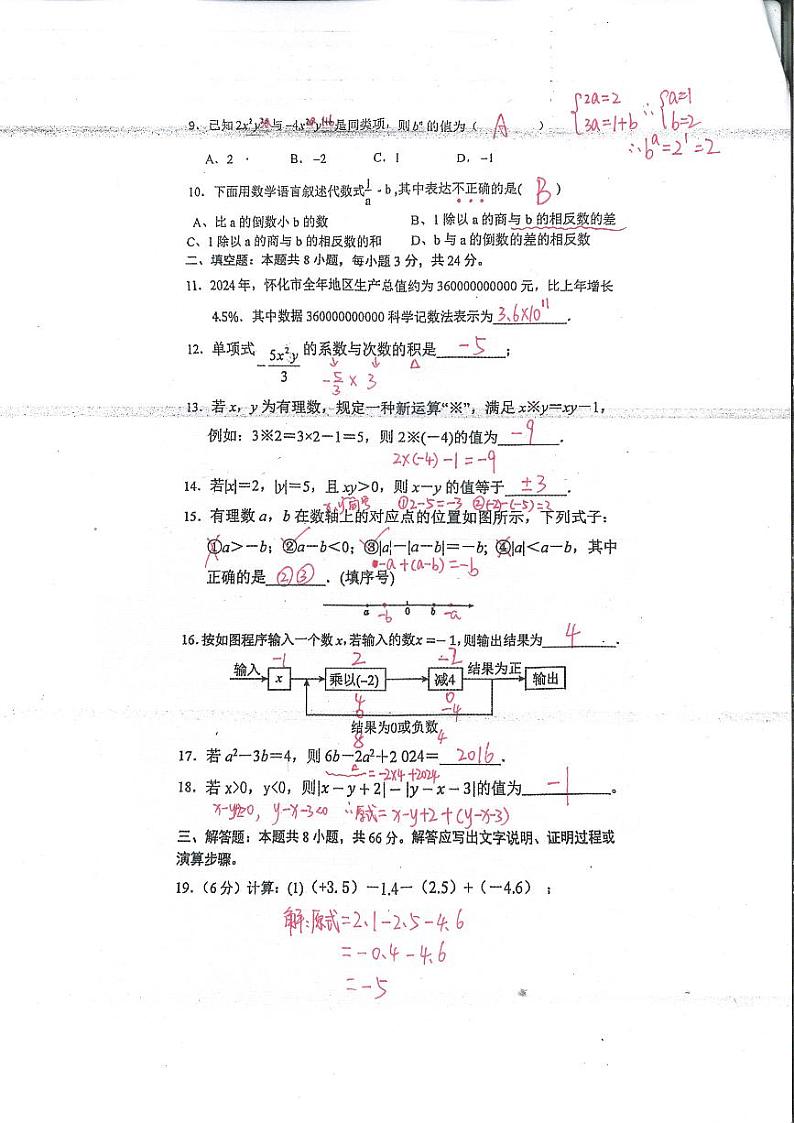 9、已知2x²y³ᵃ与-4x²ᵃy¹⁺ᵇ是同类项，则bᵃ的值为（ A ）
{2a=2 3a=1+b ∴{a=1 b=2
∴bᵃ=2¹=2
A、2 B、-2 C、1 D、-1
10、下面用数学语言叙述代数式1/a-b,其中表达不正确的是( B )
A、比a的倒数小b的数 B、1除以a的商与b的相反数的差
C、1除以a的商与b的相反数的和 D、b与a的倒数的差的相反数
二、填空题：本题共8小题，每小题3分，共24分。
11．2024年，怀化市全年地区生产总值约为360000000000元，比上年增长
4.5%．其中数据360000000000科学记数法表示为3.6×10¹¹．
12、单项式-5x²y/3的系数与次数的积是-5；
-5/3×3
13．若x，y为有理数，规定一种新运算“※”，满足x※y＝xy－1，
例如：3※2＝3×2－1＝5，则2※(－4)的值为-9．
2×(-4)-1=-9
14．若|x|＝2，|y|＝5，且xy＞0，则x－y的值等于±3．
x,y同号 ①2-5=-3 ②(-2)-(-5)=3
15．有理数a，b在数轴上的对应点的位置如图所示，下列式子：
①a＞－b；②a－b＜0；③|a|－|a－b|＝－b；④|a|＜a－b，其中
-a+(a-b)=-b
正确的是②③．(填序号)
a -b 0 b -a
16．按如图程序输入一个数x，若输入的数x＝－1，则输出结果为4．
-1 2 -2
输入 x 乘以(-2) 减4 结果为正 输出
4 0
-4
结果为0或负数
8 4
17．若a²－3b＝4，则6b－2a²＋2 024＝2016．
=-2×4+2024
18．若x>0，y<0，则|x－y＋2|－|y－x－3|的值为-1。
y-x-3<0 ∴原式=x-y+2+(y-x-3)
三、解答题：本题共8小题，共66分。解答应写出文字说明、证明过程或
演算步骤。
19．（6分）计算：(1)（+3.5）－1.4－（2.5）＋（－4.6）；
解：原式=2.1-2.5-4.6
=-0.4-4.6
=-5